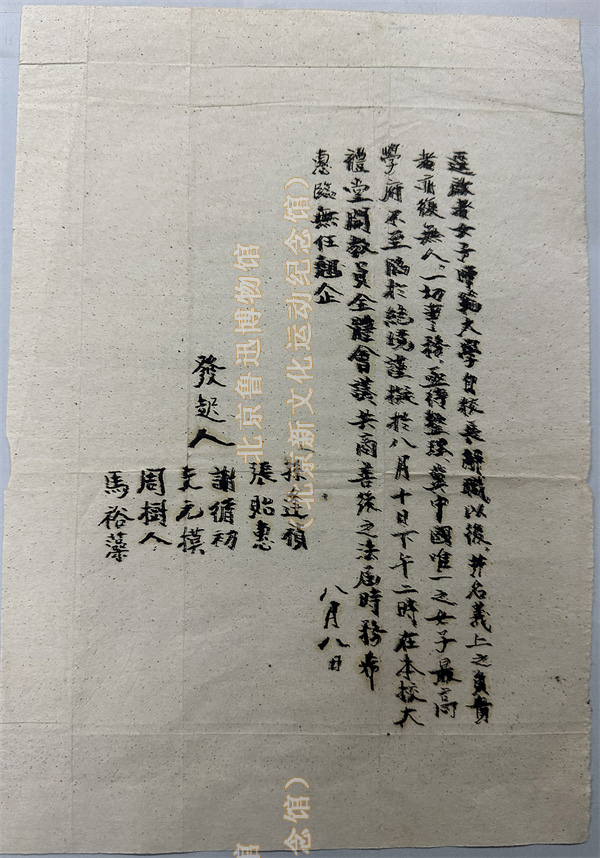 逕啟者女子師範大學自校長解職以後、并名義上之負責
者亦復無人、一切事務、亟待整理冀中國唯一之女子最高
學府不至瀕於絕境謹擬於八月十日下午二時在本校大
禮堂開教員全體會議共商善後之法屆時務希
惠臨無任翹企
八月八日
發起人
孫逢禎
張貽惠
謝循初
文元模
周樹人
馬裕藻
北京鲁迅博物馆
（北京新文化运动纪念馆）
馆
念馆）